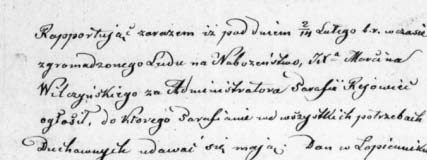 Rapportując zarazem iż pod dniem 2/14 Lutego t.r. w czasie
zgromadzonego Ludu na Nabożeństwo, JXa Marcina
Wilczyńskiego za Administratora Parafii Rejowiec
ogłosił, do którego Parafianie we wszystkich potrzebach
Duchownych udawać się mają Dan w Łopienniku